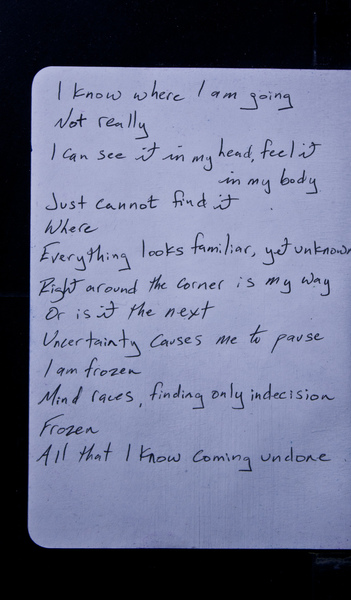 I know where I am going
Not really
I can see it in my head, feel it
in my body
Just cannot find it.
Where
Everything looks familiar, yet unknown
Right around the corner is my way
Or is it the next
Uncertainty causes me to pause
I am frozen
Mind races, finding only indecision
Frozen
All that I know coming undone.